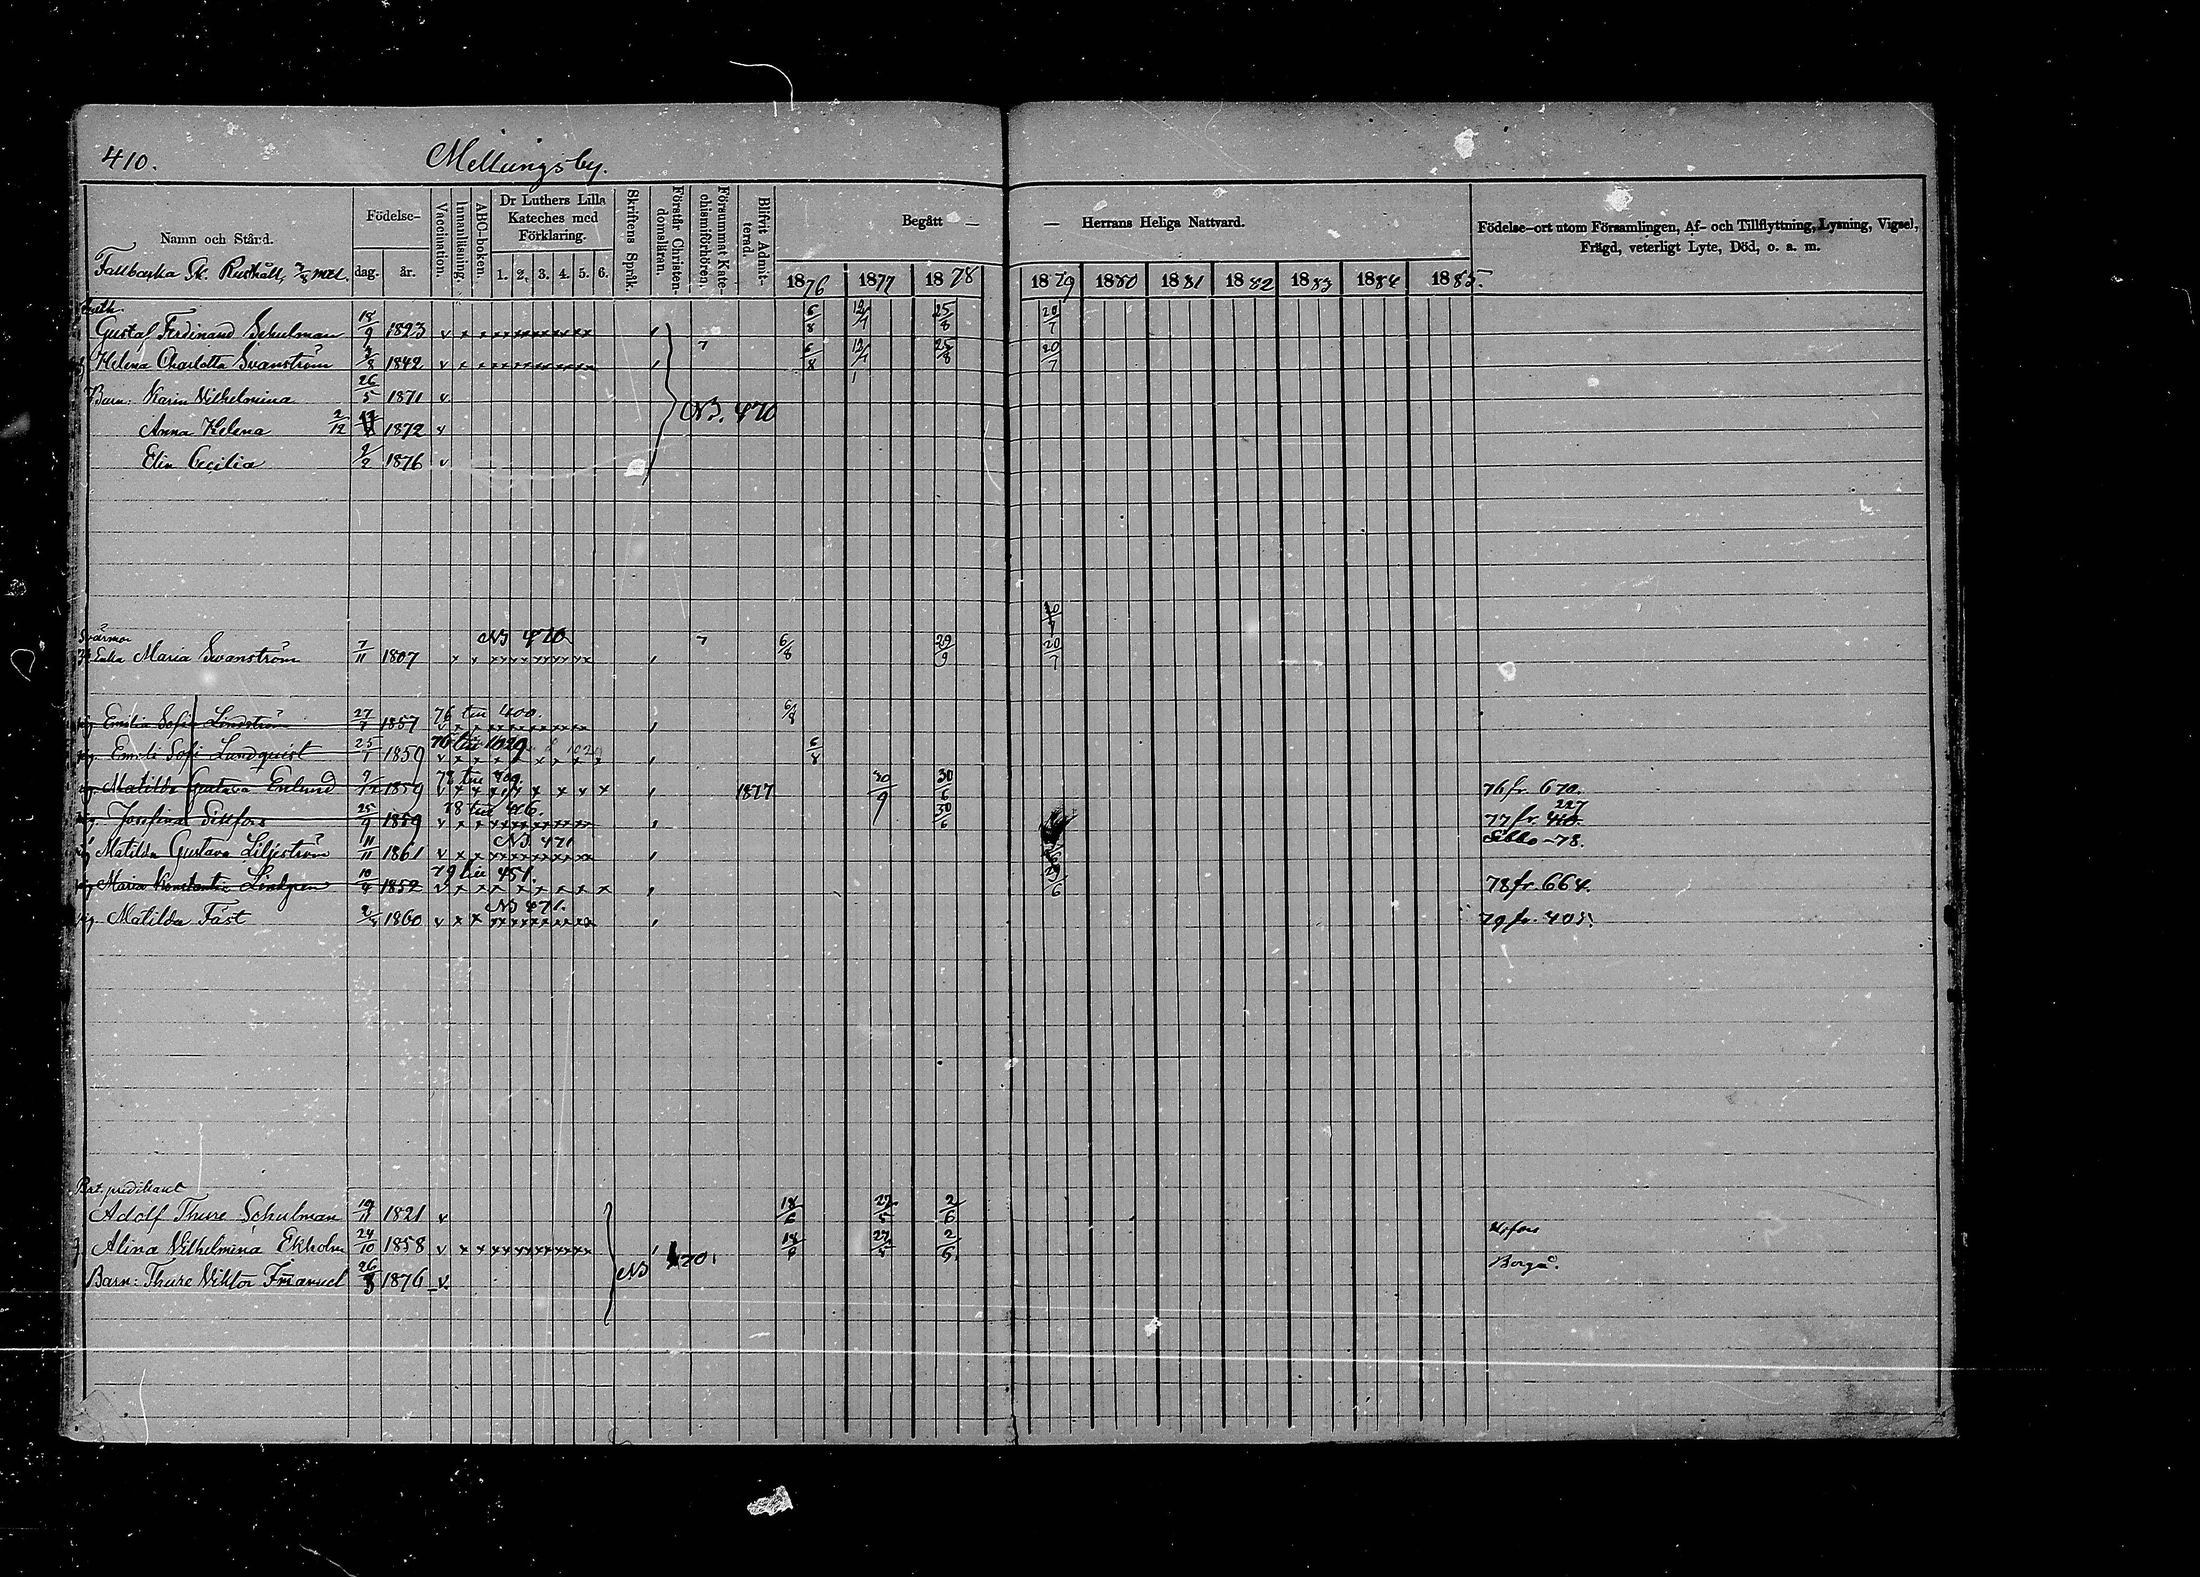 410. Mellungsby.
Namn och Stånd. Födelse- dag. år. Vaccination. Innanläsning. ABC-boken. Dr Luthers Lilla Kateches med Förklaring. 1. 2. 3. 4. 5. 6. Skriftens Språk. Förstår Christendomsläran. Försummat Katechismiförhören. Blifvit Admitterad. Begått — — Herrans Heliga Nattvard. Födelse-ort utom Församlingen, Af- och Tillflyttning, Lysning, Vigsel, Frägd, veterligt Lyte, Död, o. a. m.
Fallbacka Sk. Rusthåll, mtl. 1876 1877 1878 1879 1880 1881 1882 1883 1884 1885.
Gustaf Ferdinand Schulman 18/9 1823 v x x 6/8 12/7 25/8 20/7
Helena Charlotta Svanström 1842 v x x 7 6/8 12/7 25/8 20/7
Barn: Karin Vilhelmina 26/5 1871 v
Anna Helena 2/12 1872 v N3. 470
Elin Cecilia 9/2 1876 v
20/7
Svärmor N3 470
Enka Maria Svanström 7/11 1807 x x 7 6/8 29/9 20/7
pig. Emilia Sofia Lindström 27/7 1857 76 till 400. 6/8
pig. Emili Sofi Lundquist 25/1 1859 76 till 1029 6/8
pig. Matilda Gustava Enlund 9/12 1859 78 till 409. 1877 30/9 30/6 76 fr. 670.
pig. Josefina Sillfors 25/9 1859 78 till 416. 30/6 77 fr. 227
pig. Matilda Gustava Liljeström 11/11 1861 N3. 471 Sibbo -78.
pig. Maria Konstantia Lindgren 10/4 1852 79 till 451. 29/6 78 fr. 664.
pig. Matilda Fast 1860 N3 471. 79 fr. 405.
Bat. predikant
Adolf Thure Schulman 19/11 1821 v 18/6 27/5 2/6
Alina Vilhelmina Ekholm 24/10 1858 v x x 18/6 27/5 2/6 Borgå.
Barn: Thure Viktor Emanuel 26/3 1876 v. N3 470.